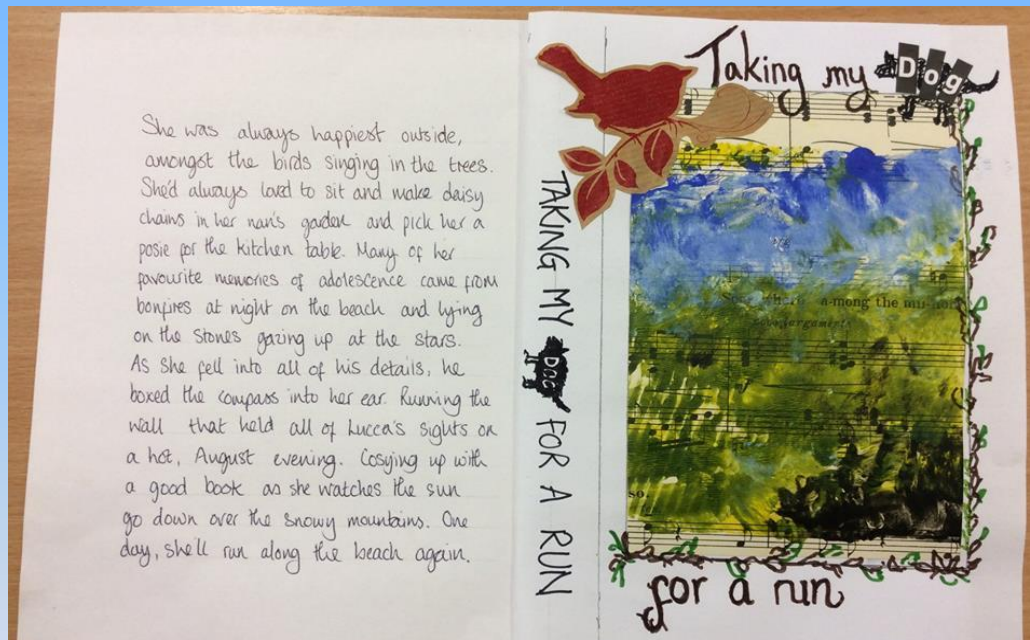 She was always happiest outside,
amongst the birds singing in the trees.
She'd always loved to sit and make daisy
chains in her nan's garden and pick her a
posie for the kitchen table. Many of her
favourite memories of adolescence came from
bonfires at night on the beach and lying
on the stones gazing up at the stars.
As she fell into all of his details, he
boxed the compass into her ear. Running the
wall that held all of Lucca's sights on
a hot, August evening. Cosying up with
a good book as she watches the sun
go down over the snowy mountains. One
day, she'll run along the beach again.
TAKING MY DOG FOR A RUN
Taking my Dog
a-mong the
so.
for a run